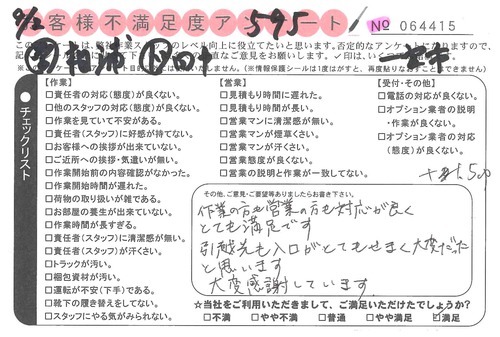 9/2 お客様不満足度アンケート 595
No 064415
チェックリスト
【作業】
□責任者の対応(態度)が良くない。
□他のスタッフの対応(態度)が良くない。
□作業を見ていて不安がある。
□責任者(スタッフ)に好感が持てない。
□お客様への挨拶が出来ていない。
□ご近所への挨拶・気遣いが無い。
□作業開始前の内容確認がなかった。
□作業開始時間が遅れた。
□荷物の取り扱いが雑である。
□お部屋の養生が出来ていない。
□作業時間が長すぎる。
□責任者(スタッフ)に清潔感が無い。
□責任者(スタッフ)が汗くさい。
□トラックが汚い。
□梱包資材が汚い。
□運転が不安(下手)である。
□靴下の履き替えをしてない。
□スタッフにやる気がみられない。
【営業】
□見積もり時間に遅れた。
□見積もり時間が長い。
□営業マンに清潔感が無い。
□営業マンが煙草くさい。
□営業マンが汗くさい。
□営業態度が良くない。
□営業の説明と作業が一致してない。
【受付・その他】
□電話の対応が良くない。
□オプション業者の説明
・作業が良くない。
□オプション業者の対応
(態度)が良くない。
その他、ご意見・ご要望等ありましたらお書き下さい。
作業の方も営業の方も対応が良く
とても満足です
引越先も入口がとてもせまく大変だった
と思います
大変感謝しています
☆当社をご利用いただきまして、ご満足いただけたでしょうか?
□不満 □やや不満 □普通 □やや満足 ☑満足